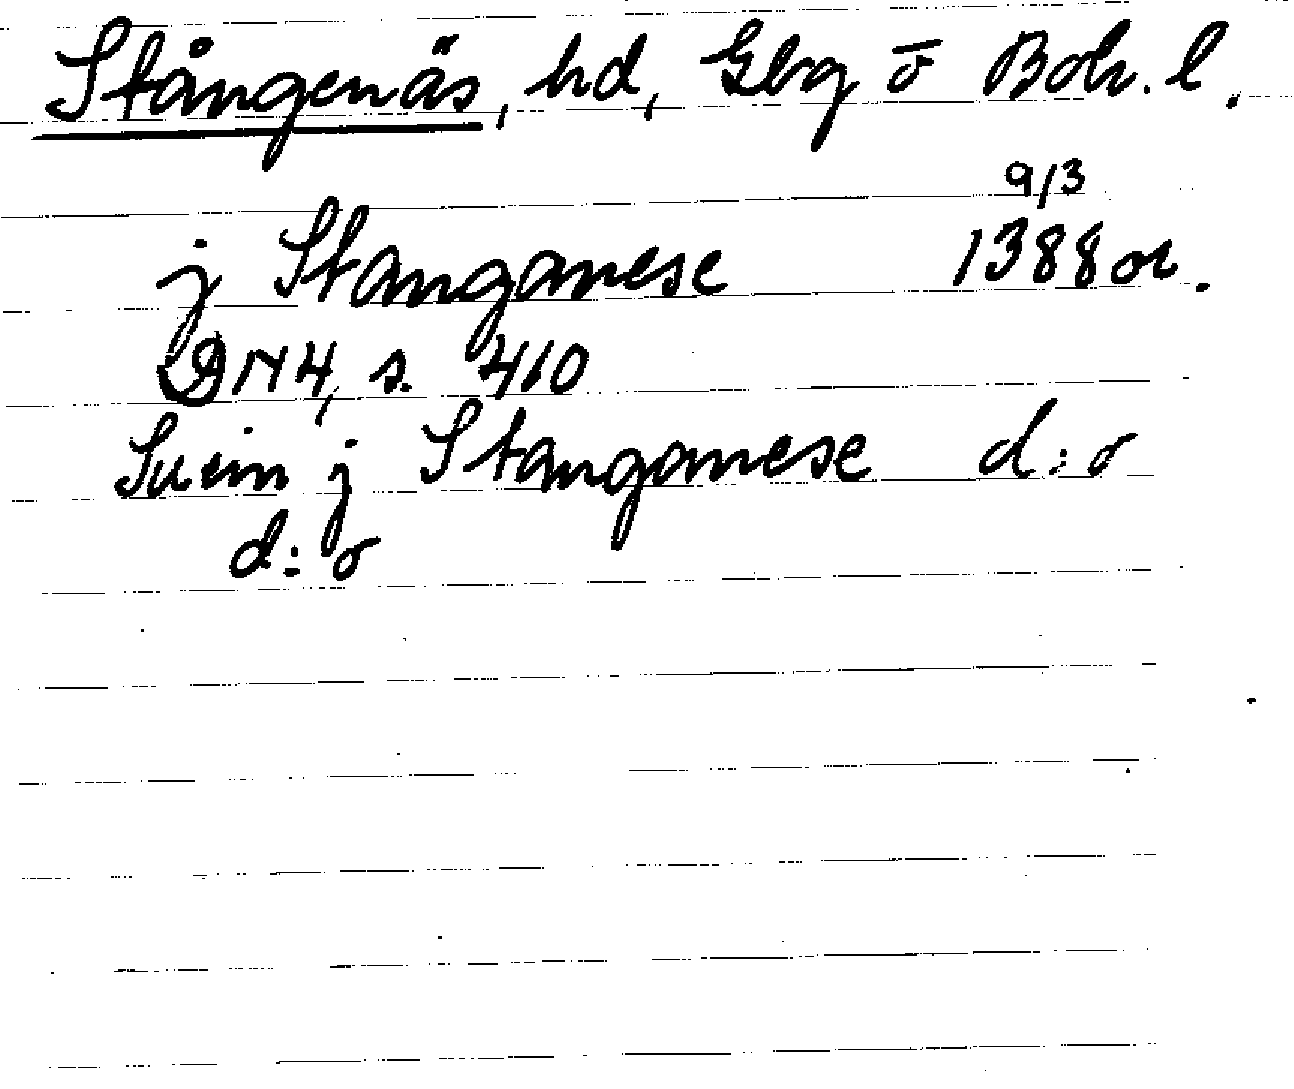 Stångenäs, hd, Gbg o Boh. l.
9/3
j Stanganese 1388 or.
DN 4, s. 410
Suein j Stanganese d:o
d:o